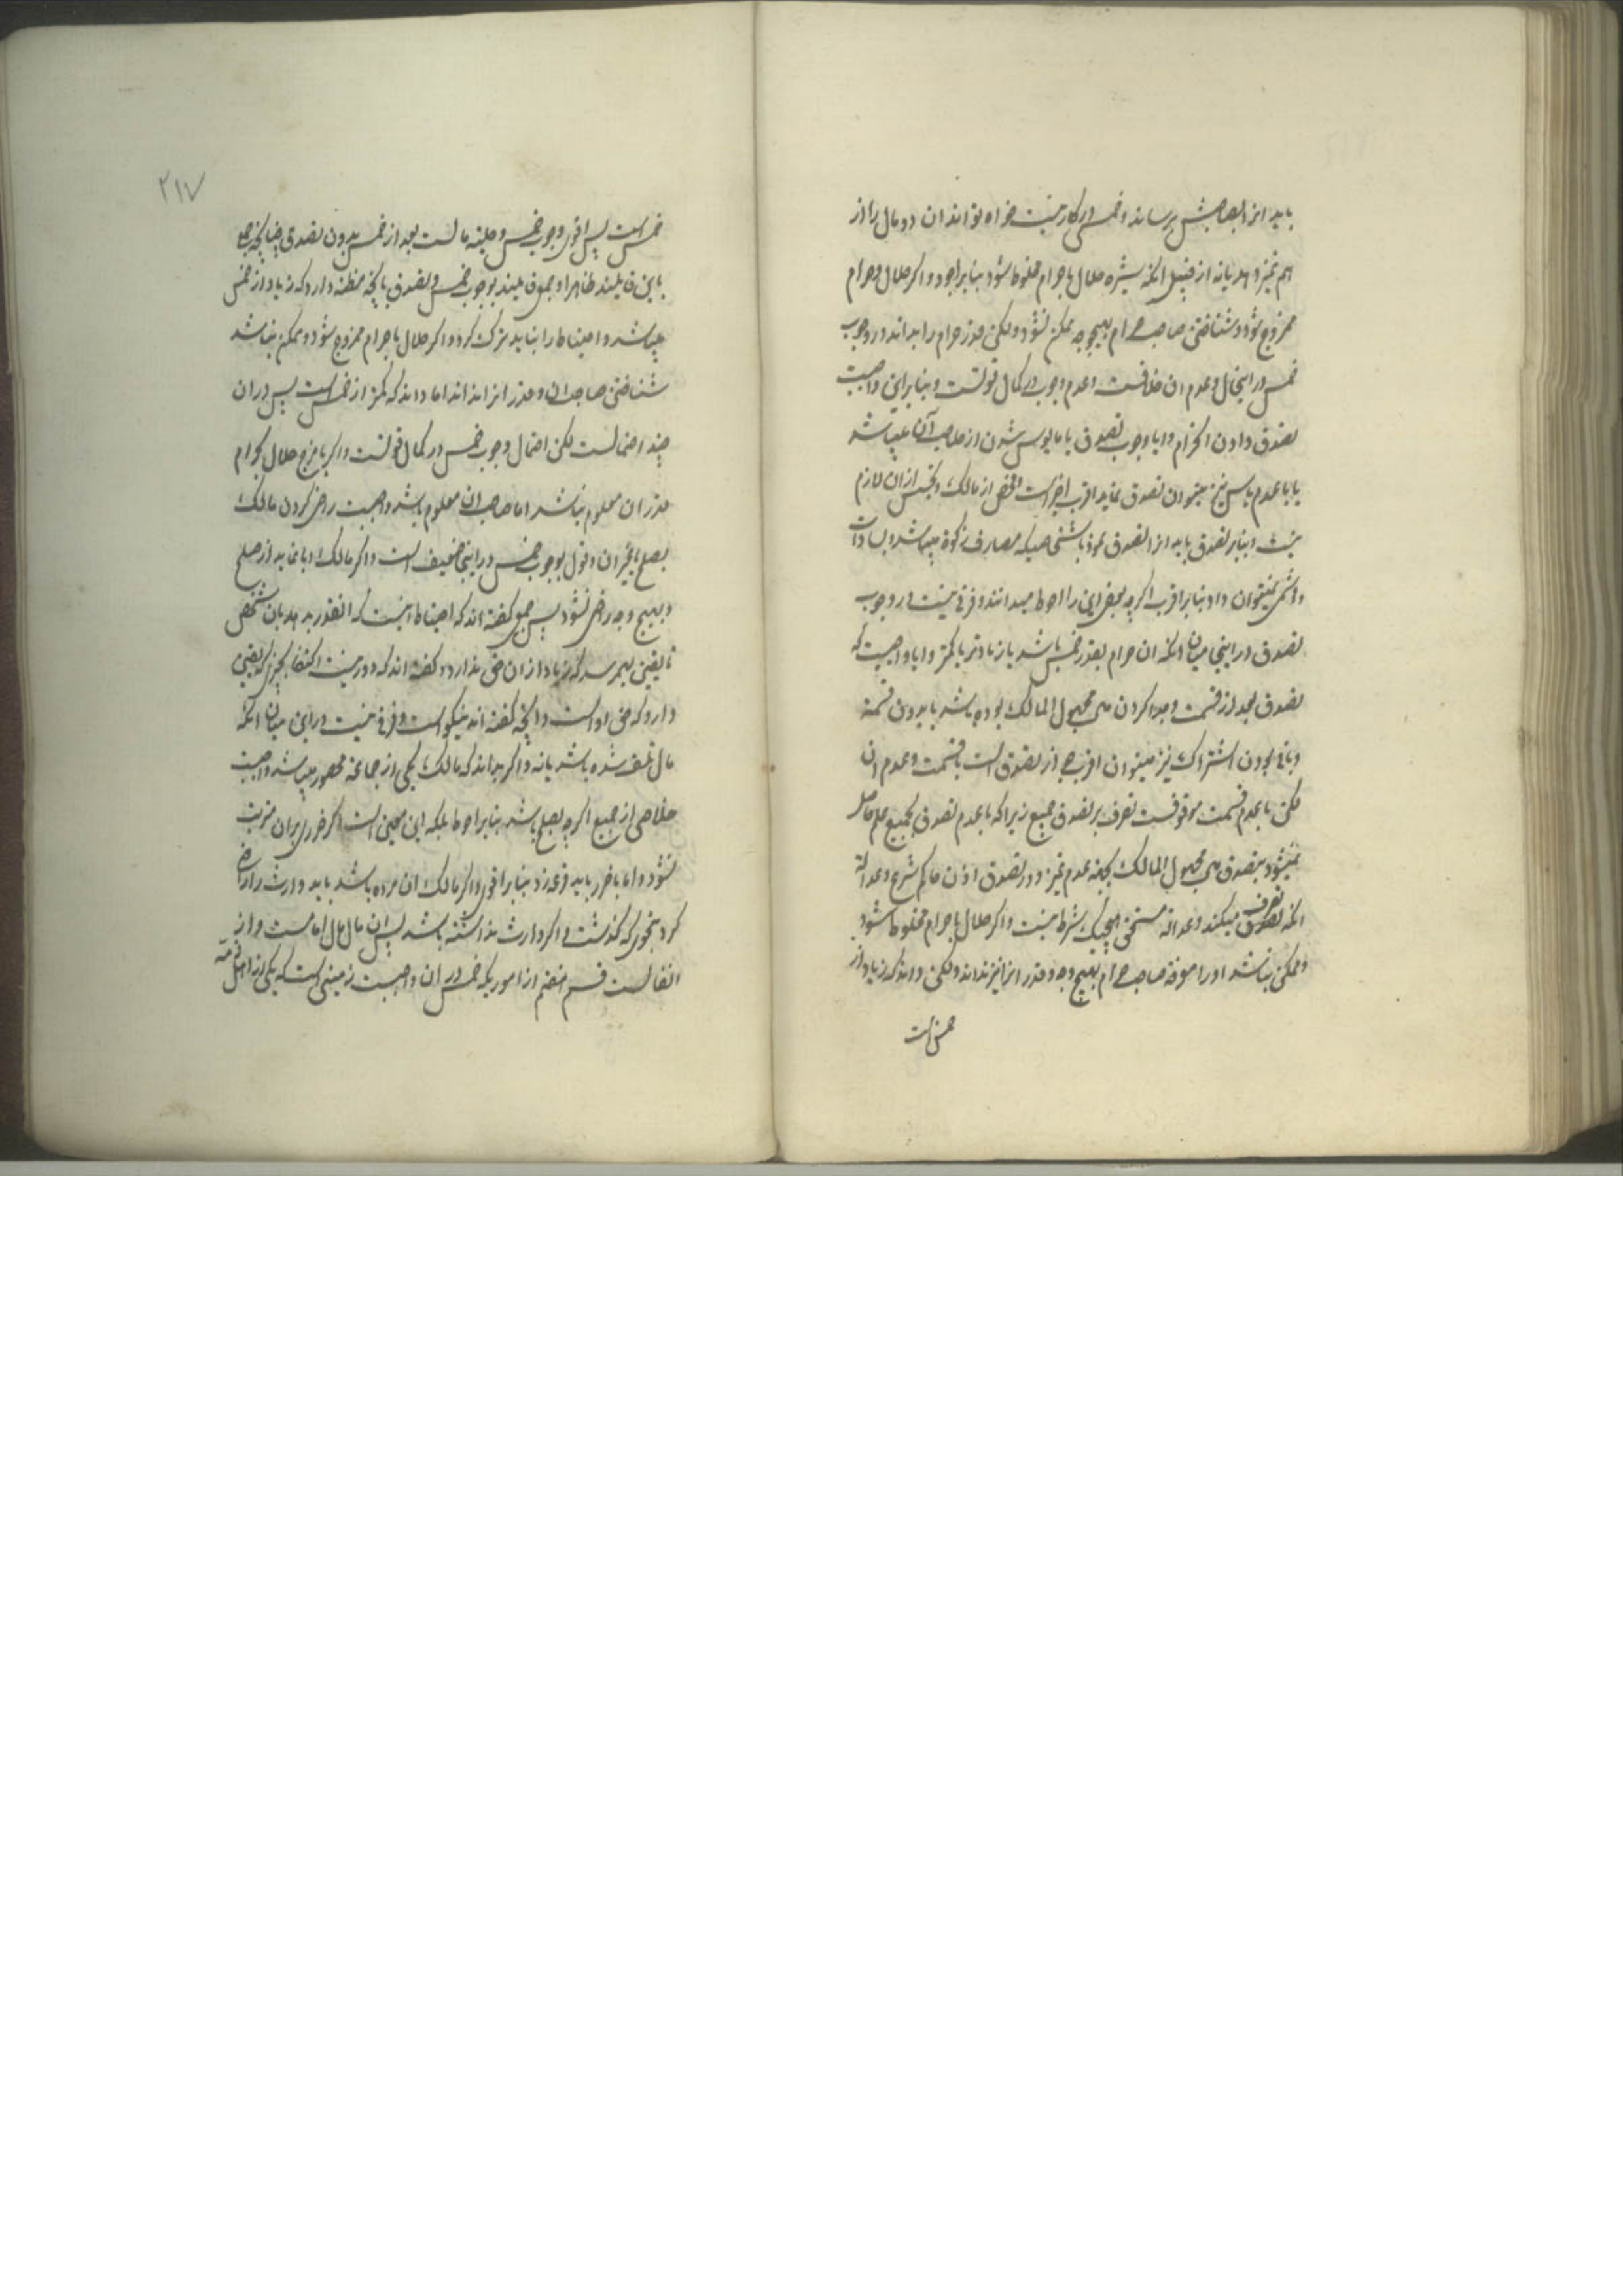 باید انرا بصاحبش برساند و خمس در کار نیست خواه تواند ان دو مال را از
هم تمیز دهد یا نه از قبیل انکه شیره حلال با حرام مخلوط شود بنابر اجود و اکر حلال و حرام
ممزوج شود و شناختن صاحب حرام بهیچوجه ممکن نشود و لکن قدر حرام را بداند در وجوب
خمس در اینحال و عدم ان خلافست و عدم وجوب در کمال قوتست و بنابراین واجبست
تصدق دادن الحرام و ایا وجوب تصدق با مایوس شدن از صاحب آن میباشد
یا با عدم یاس نیز میتوان تصدق نماید اقرب اخیر است و فحص از مالک و تجسس از ان لازم
نیست و بنابر تصدق باید انرا تصدق نمود باشخاصیکه مصارف زکوة میباشد و بسادات
هاشمی نمیتوان داد بنابر اقرب اکرچه بعضی این را احوط میدانند و فرقی نیست در وجوب
تصدق در اینجا میان انکه ان حرام بقدر خمس باشد یا زیادتر یا کمتر و ایا واجبست که
تصدق بعد از قسمت و جدا کردن مجهول المالک بوده باشد یا بدون قسمة
و باقی بودن اشتراک نیز میتوان اقرب جواز تصدق است با قسمت و عدم ان
لکن با عدم قسمت موقوفست تصرف بر تصدق جمیع زیرا که با عدم تصدق بجمیع علم حاصل
نمیشود بتصدق مجهول المالک بجهة عدم تمیز و در تصدق اذن حاکم شرع و عدالة
انکه تصرف تصدق میکند و عدالة مستحق هیچیک شرط نیست و اکر حلال با حرام مخلوط شود
و ممکن نباشد او را معرفة صاحب حرام بهیچوجه و قدر انرا نیز نداند و لکن داند که زیاد از
خمس است
٢١٧
خمس است پس اقوی وجوب خمس و حلیة مالست بعد از خمس بدون تصدق چنانچه جمعی
باین قایلند ظاهرا و جمعی قایلند بوجوب خمس و تصدق بانچه مظنه دارد که زیاد از خمس
میباشد و احتیاط را نباید ترک کرد و اکر حلال با حرام ممزوج شود و ممکن نباشد
شناختن صاحب ان و قدر انرا نداند اما داند که کمتر از خمس است پس در ان
چند احتمالست لکن احتمال وجوب خمس در کمال قوتست و اکر با مزج حلال بحرام
قدر ان معلوم نباشد اما صاحب ان معلوم باشد واجبست راضی کردن مالک
بصلح یا بغیر ان و قول بوجوب خمس در اینجا ضعیف است و اکر مالک ابا نماید از صلح
و بهیچ وجه راضی نشود پس جمعی کفته اند که احتیاط اینست که انقدر بدهد بان شخص
تا یقین بهم رسد که زیاد از ان حق ندارد و کفته اند که دور نیست اکتفا بچیزی که یقین
دارد که حق او است و انچه کفته اند نیکو است و فرقی نیست در این میان انکه
مال تلف شده باشد یا نه و اکر بداند که مالک یکی از جماعة محصور میباشد واجبست
خلاصی از جمیع اکرچه بصلح باشد بنابر احوط بلکه این معین است اکر ضرری بران مترتب
نشود و اما با ضرر باید قرعه زد بنابر اقوی و اکر مالک ان مرده باشد باید وارث را راضی
کرد بنحوی که کذشت و اکر وارث نداشته باشد پس ان مال مال امامست و از
انفالست قسم هفتم از اموریکه خمس در ان واجبست زمینی است که یکی از اهل ذمة